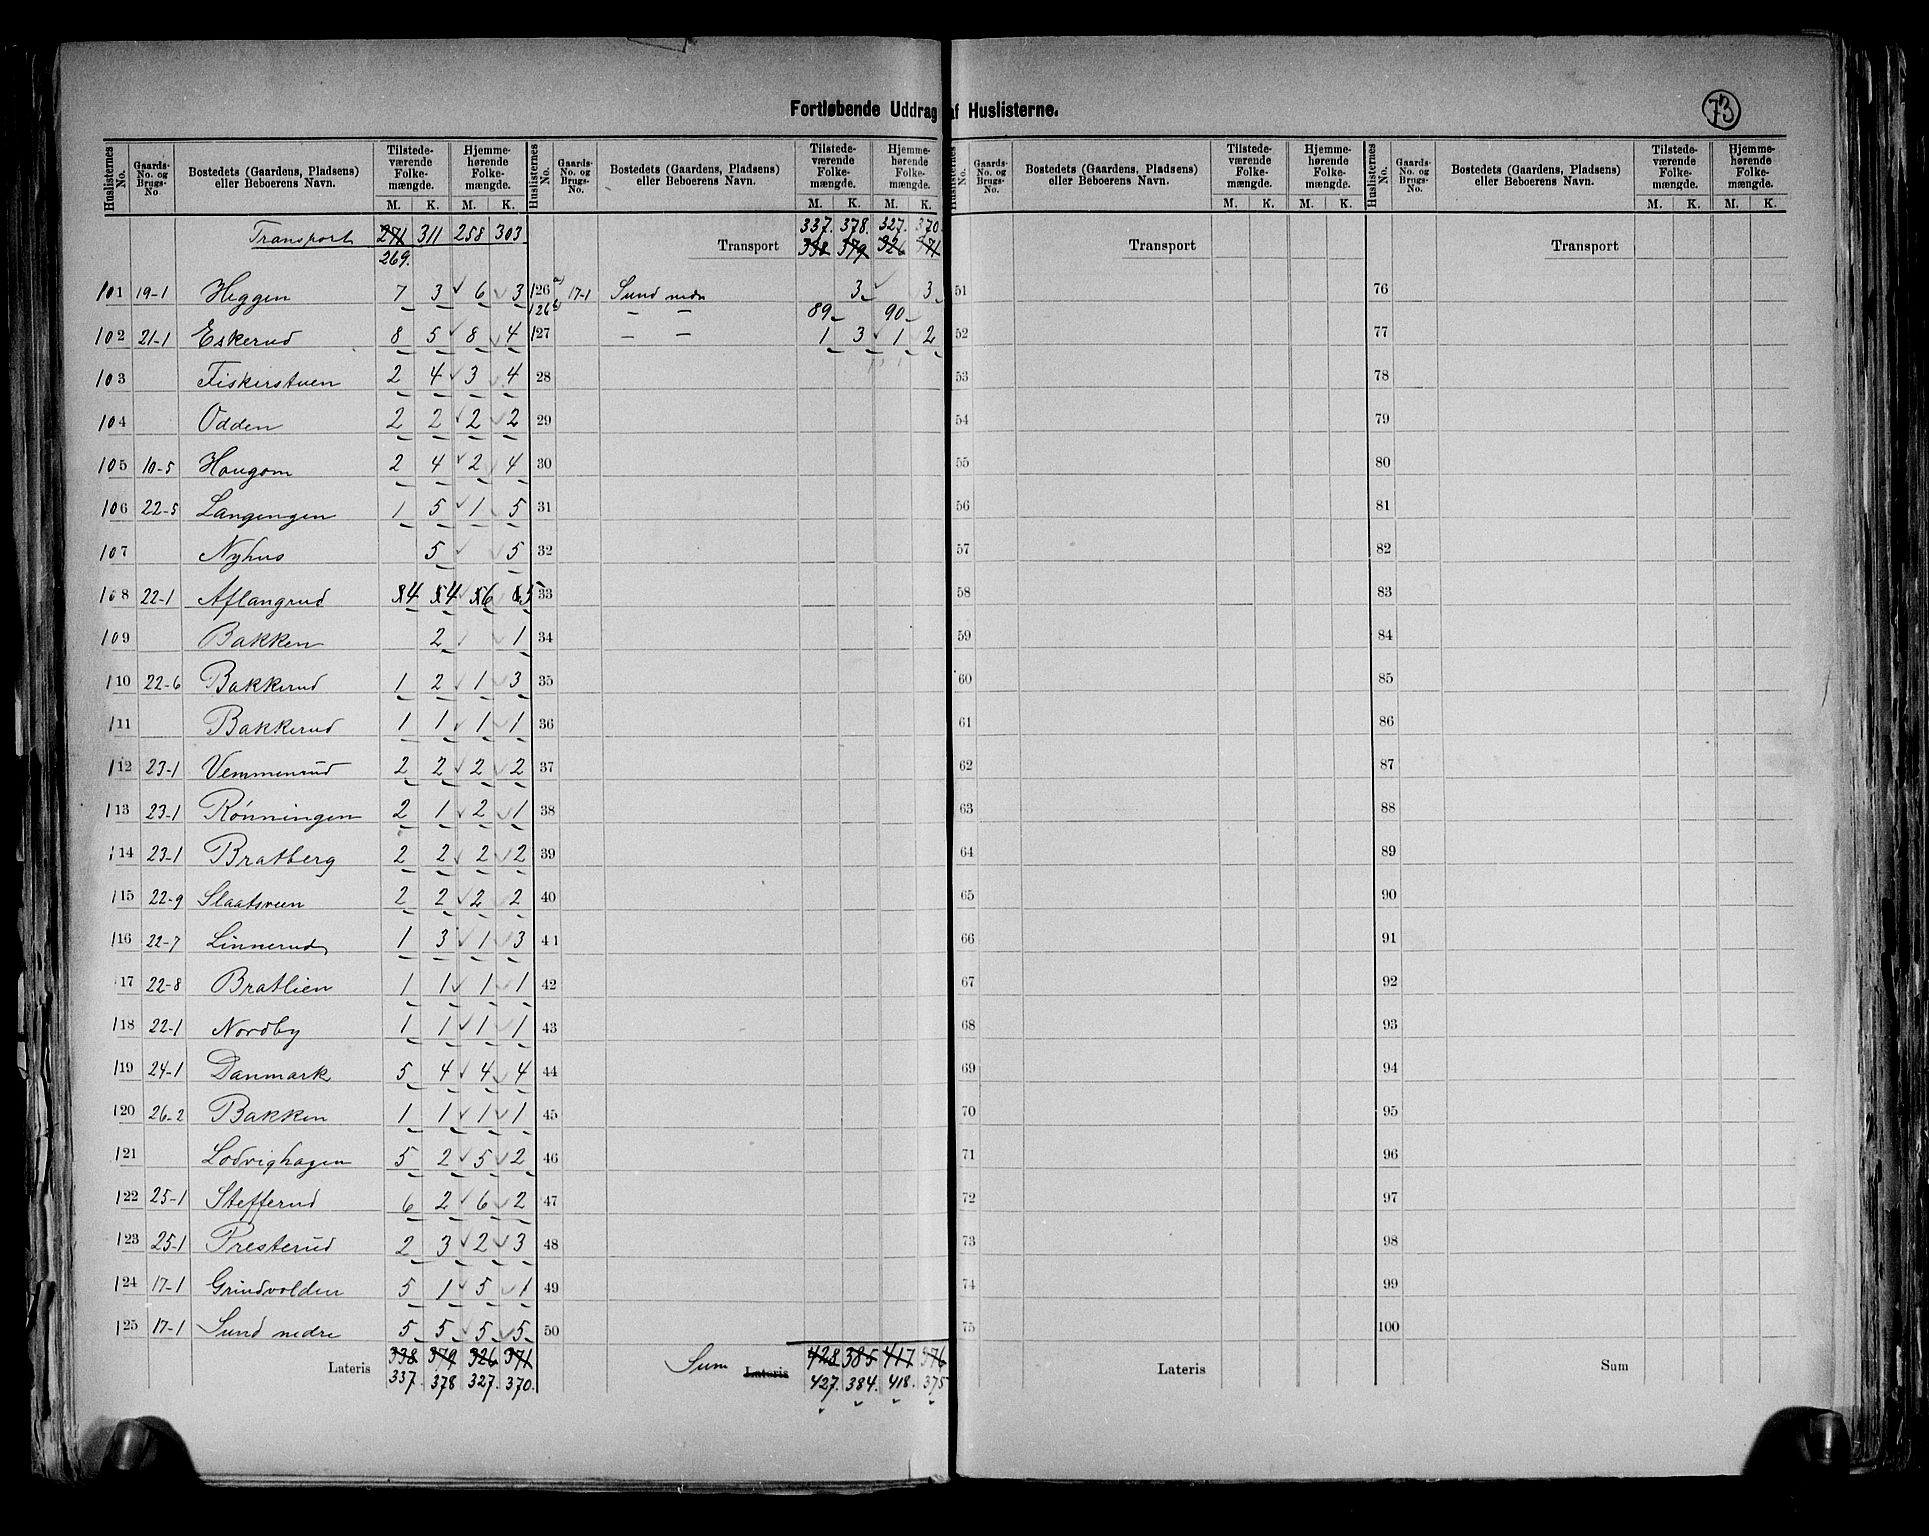 Fortløbende Uddrag af Huslisterne.
73
Huslisternes No. Gaards-No. og Brugs-No. Bostedets (Gaardens, Pladsens) eller Beboerens Navn. Tilstedeværende Folkemængde. Hjemmehørende Folkemængde.
M. K. M. K.
Transport 271 311 258 303
269.
101 19-1 Heggen 7 3 6 3
102 21-1 Eskerud 8 5 8 4
103 Fiskerstuen 2 4 3 4
104 Odden 2 2 2 2
105 10-5 Haugom 2 4 2 4
106 22-5 Langengen 1 5 1 5
107 Nyhus 5 5
108 22-1 Aflangrud 4 4 6 5
109 Bakken 2 1
110 22-6 Bakkerud 1 2 1 3
111 Bakkerud 1 1 1 1
112 23-1 Vemmenrud 2 2 2 2
113 23-1 Rønningen 2 1 2 1
114 23-1 Bratberg 2 2 2 2
115 22-9 Slaatsveen 2 2 2 2
116 22-7 Linnerud 1 3 1 3
117 22-8 Bratlien 1 1 1 1
118 22-1 Nordby 1 1 1 1
119 24-1 Danmark 5 4 4 4
120 26-2 Bakken 1 1 1 1
121 Lodvighagen 5 2 5 2
122 25-1 Stefferud 6 2 6 2
123 25-1 Presterud 2 3 2 3
124 17-1 Grindvolden 5 1 5 1
125 17-1 Sund nedre 5 5 5 5
Lateris 338 379 326 371
337. 378 327. 370.
Huslisternes No. Gaards-No. og Brugs-No. Bostedets (Gaardens, Pladsens) eller Beboerens Navn. Tilstedeværende Folkemængde. Hjemmehørende Folkemængde.
M. K. M. K.
337. 378. 327. 370.
Transport 338 379 326 371
126 a) 17-1 Sund nedr 3 3
126 b) — — 89 90
127 — — 1 3 1 2
28
29
30
31
32
33
34
35
36
37
38
39
40
41
42
43
44
45
46
47
48
49
50
Sum Lateris 428 385 417 376
427. 384. 418. 375
Huslisternes No. Gaards-No. og Brugs-No. Bostedets (Gaardens, Pladsens) eller Beboerens Navn. Tilstedeværende Folkemængde. Hjemmehørende Folkemængde.
M. K. M. K.
Transport
51
52
53
54
55
56
57
58
59
60
61
62
63
64
65
66
67
68
69
70
71
72
73
74
75
Lateris
Huslisternes No. Gaards-No. og Brugs-No. Bostedets (Gaardens, Pladsens) eller Beboerens Navn. Tilstedeværende Folkemængde. Hjemmehørende Folkemængde.
M. K. M. K.
Transport
76
77
78
79
80
81
82
83
84
85
86
87
88
89
90
91
92
93
94
95
96
97
98
99
100
Sum